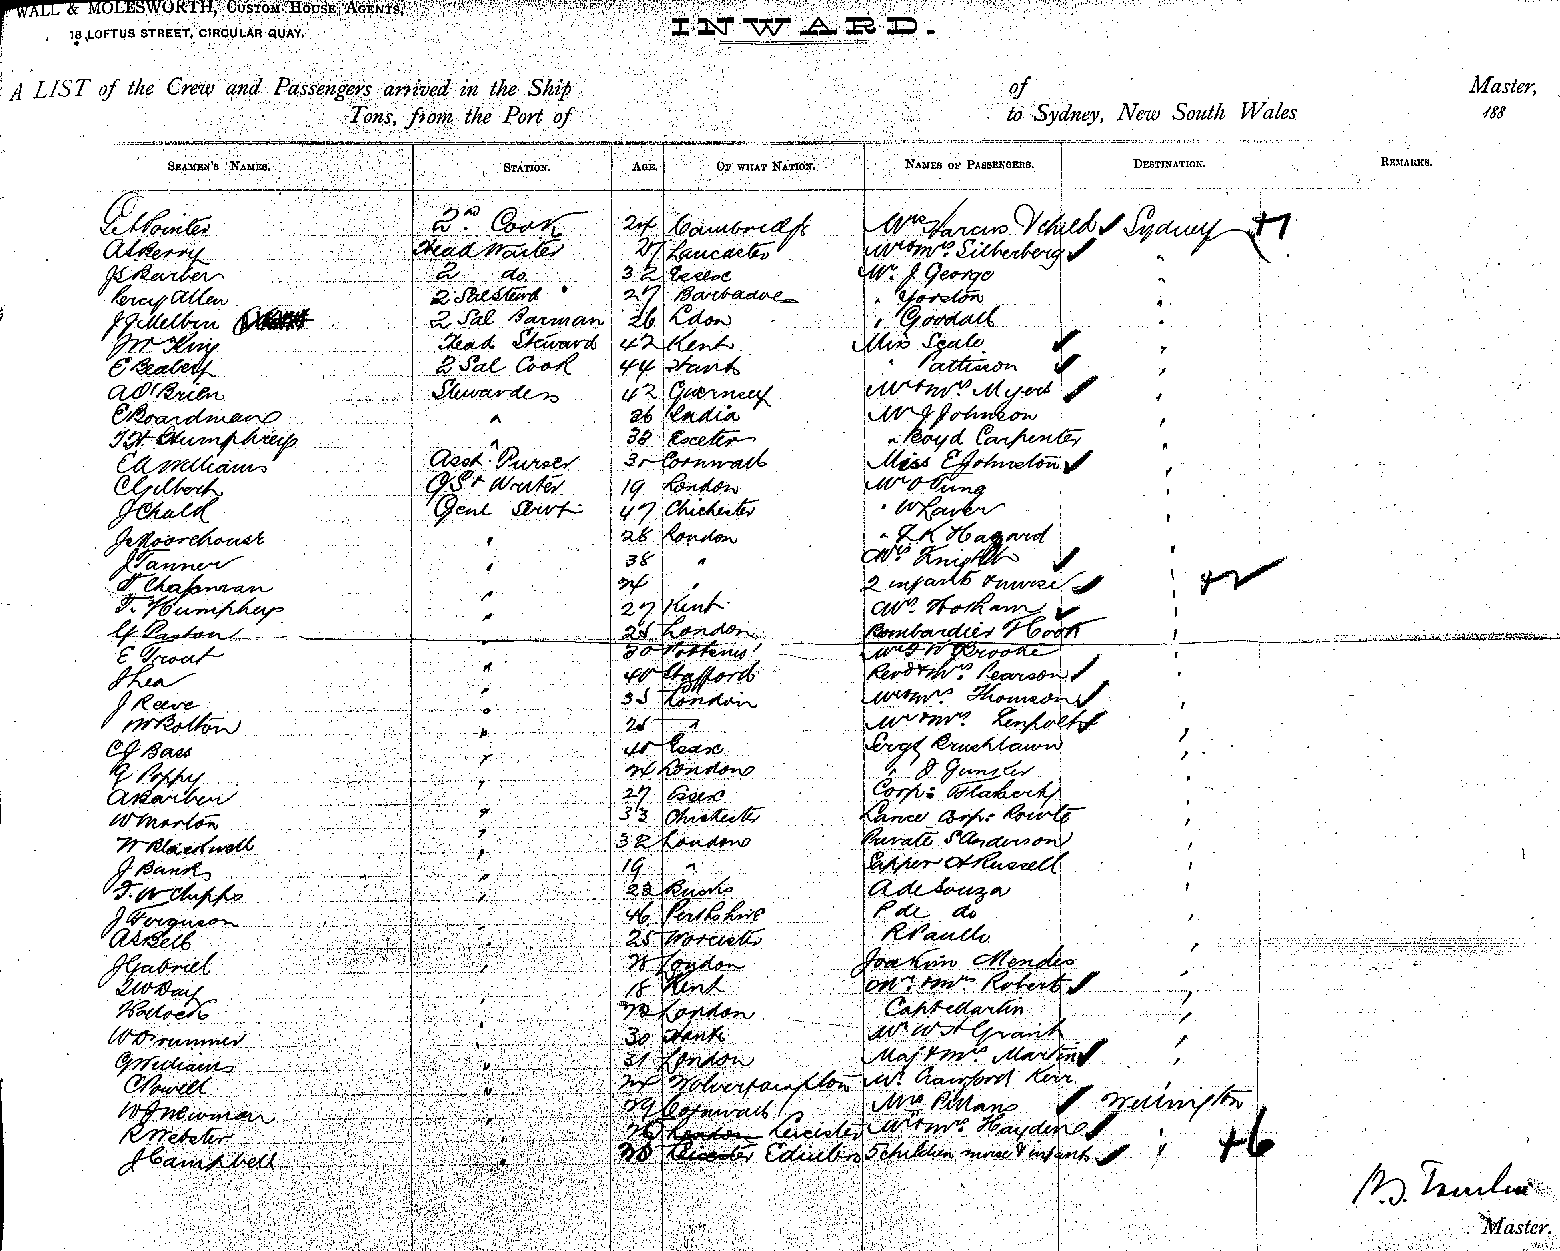 WALL & MOLESWORTH, CUSTOM HOUSE AGENTS,
18, LOFTUS STREET, CIRCULAR QUAY.
INWARD.
A LIST of the Crew and Passengers arrived in the Ship of Master,
Tons, from the Port of to Sydney, New South Wales 188
SEAMEN'S NAMES. STATION. AGE. OF WHAT NATION. NAMES OF PASSENGERS. DESTINATION. REMARKS.
Pointer 2nd Cook 24 Cambridge Mrs Harcus & child Sydney
Head Waiter 27 Lancaster Mr & Mrs Silberberg "
J Barber 2 do 32 Essex Mr. J. George "
Percy Allen 2 27 Barbadoes " Yordon "
J J Melbin 2 Sal Barman 26 Ldon " Goodall "
J W King Head Steward 42 Kent Miss Seale "
E 2 Sal Cook 44 Hants " Pattison "
A O'Brien Stewardess 42 Guernsey Mr & Mrs Myers "
E Boardman " 26 India Mr J Johnson
Humphreys " 38 Exeter " Boyd Carpenter "
E A Williams Asst. Purser 30 Cornwall Miss E Johnston "
C Writer 19 London Mr
J Chald Genl Servt 47 Chichester " W Laver "
J Moorehouse " 28 London " J K Hagard "
J Tanner " 38 " Mrs Knight "
Chapman " 24 " 2 infants & nurse "
F. Humphreys " 27 Kent Mrs. Hotham "
Paston " 28 London Bombardier Hook "
E Trout " 30 Mr W Broode "
J Lea " 40 Stafford Revd & Mrs. Pearson "
J Reeve " 35 London Mr & Mrs. Thomson
W Bolton " " Mr & Mrs. "
C J Bass " 40 Essex Sergt Crushlawn "
G Poppy " 24 London " J "
A Barber 27 Essex Corp: "
W Morton " 33 Chichester Lance Corp: "
W Blackwell " 32 London Private S Anderson "
J Banks " 19 " Sapper A Russell "
F. W Chipps " 23 Bucks A de Souza "
J Ferguson 46 Perthshire P de do "
A S Bell " 25 Worcester R Paull
J Gabriel " 28 London Joakim Mendes "
Day 18 Kent Mr. & Mrs Robert "
" London Capt Martin "
W Drummer 30 Hants Mr W H Grant "
G Williams " 31 London Maj & Mrs Martin "
C Powell " 24 Wolverhampton Mr. Crawford Kerr
W J Newman " 29 Cornwall Mrs Pillans Wellington
R Webster " London Leicester Mr & Mrs. Hayden "
J Campbell " 28 Leicester Edinburg 5 children nurse & infant " +6
Master.